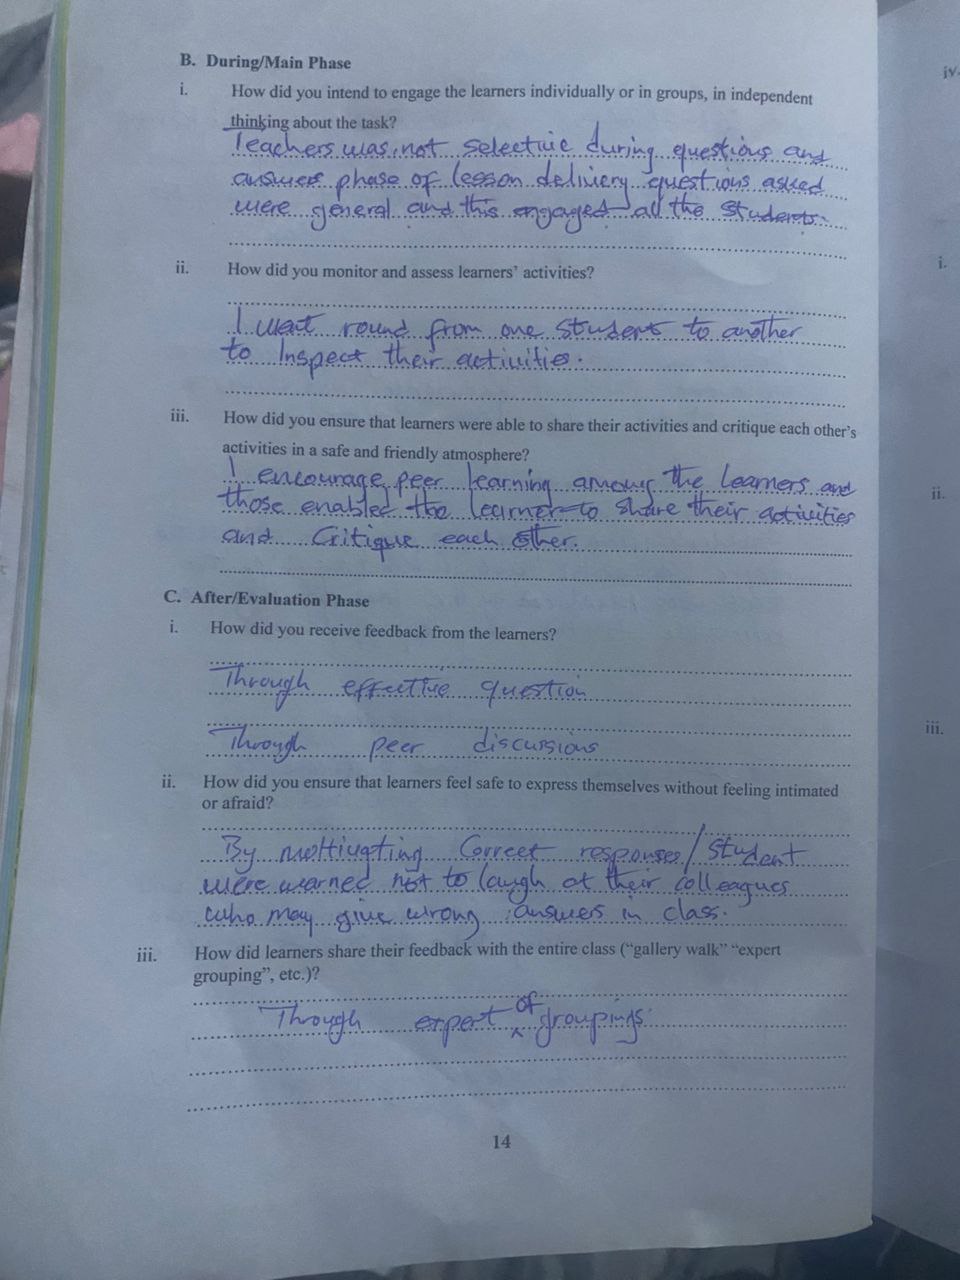 B. During/Main Phase
i. How did you intend to engage the learners individually or in groups, in independent
thinking about the task?
Teachers was not selective during questions and
answers phase of lesson delivery questions asked
were general and this engaged all the students.
ii. How did you monitor and assess learners' activities?
I went round from one student to another
to Inspect their activities.
iii. How did you ensure that learners were able to share their activities and critique each other's
activities in a safe and friendly atmosphere?
I encourage peer learning among the learners and
those enabled the learner to share their activities
and Critique each other.
C. After/Evaluation Phase
i. How did you receive feedback from the learners?
Through effective question
Through peer discussions
ii. How did you ensure that learners feel safe to express themselves without feeling intimated
or afraid?
By mottivating Correct responses/student
were warned not to laugh at their colleagues
who may give wrong answers in class.
iii. How did learners share their feedback with the entire class ("gallery walk" "expert
grouping", etc.)?
Through expert of groupings
14
iv.
i.
ii.
iii.